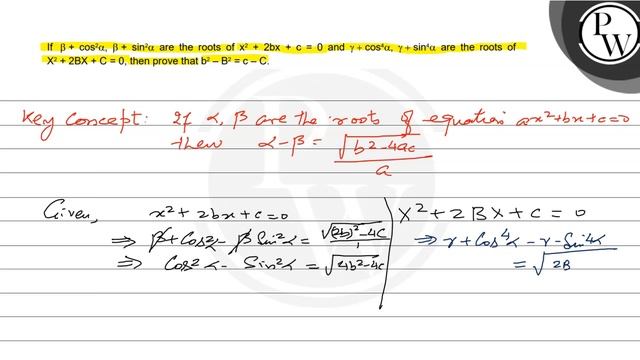 If β + cos²α, β + sin²α are the roots of x² + 2bx + c = 0 and γ + cos⁴α, γ + sin⁴α are the roots of
X² + 2BX + C = 0, then prove that b² – B² = c – C.
PW
Key Concept: If α, β are the roots of equation ax²+bx+c=0
then α-β = √(b²-4ac)/a
Given, x²+2bx+c=0
⇒ β+Cos²α-β Sin²α = √((2b)²-4C)/1
⇒ Cos²α - Sin²α = √(4b²-4c)
X²+2BX+C=0
⇒ γ+Cos⁴α-γ-Sin⁴α
= √(2B